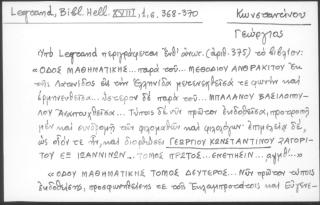 Legrand, Bibl. Hell. XVIII, 1, σ. 368-370
Κωνσταντίνου
Γεώργιος
Ὑπὸ Legrand περιγράφεται ἐνθ' ἀνωτ. (ἀριθ. 375) τὸ βιβλίον:
«ΟΔΟΣ ΜΑΘΗΜΑΤΙΚΗΣ... παρὰ τοῦ... ΜΕΘΟΔΙΟΥ ΑΝΘΡΑΚΙΤΟΥ Ἐκ
τῆς Λατινίδος εἰς τὴν Ἑλληνίδα μετενεχθεῖσά τε φωνὴν καὶ
ἑρμηνευθεῖσα... ὕστερον δὲ παρὰ τοῦ... ΜΠΑΛΑΝΟΥ ΒΑΣΙΛΟΠΟΥ-
ΛΟΥ Τύποις δὲ νῦν πρῶτον ἐκδοθεῖσα, προτροπῇ
μὲν καὶ συνδρομῇ τῶν φιλομαθῶν καὶ ἐπιμελείᾳ δὲ,
ὡς οἷόν τε ἦν, καὶ διορθώσει ΓΕΩΡΓΙΟΥ ΚΩΝΣΤΑΝΤΙΝΟΥ ΖΑΓΟΡΙ-
ΤΟΥ ΕΞ ΙΩΑΝΝΙΝΩΝ... ΤΟΜΟΣ ΠΡΩΤΟΣ... ΕΝΕΤΙΗΣΙΝ... αψμθ'...»
«ΟΔΟΥ ΜΑΘΗΜΑΤΙΚΗΣ ΤΟΜΟΣ ΔΕΥΤΕΡΟΣ... Νῦν πρῶτον τύποις
ἐκδοθεὶς, προσφωνηθεὶς τε τοῖς καὶ Εὐγενε-